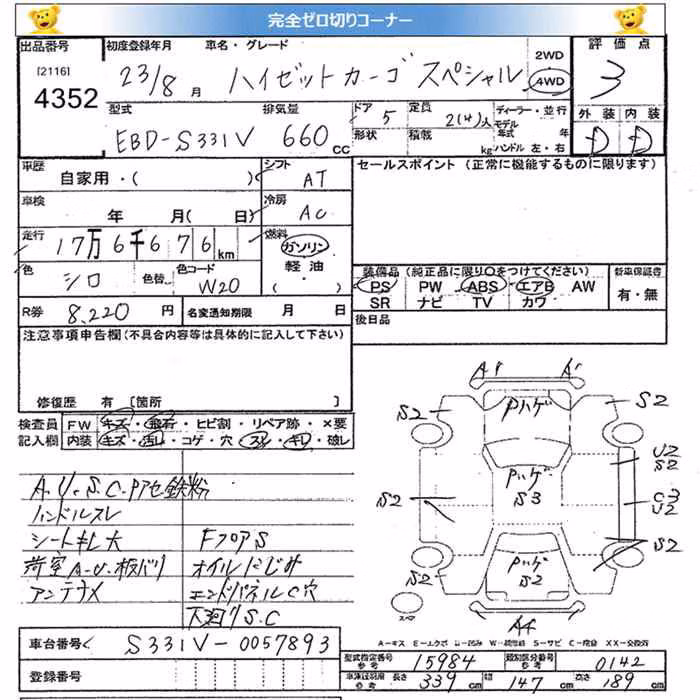 完全ゼロ切りコーナー
出品番号
[2116]
4352
初度登録年月 車名・グレード
23/8月 ハイゼットカーゴスペシャル
2WD
4WD
評価点
3
外装 内装
D D
型式 排気量
EBD-S331V 660cc
ドア 5 定員 2(4)人
形状 積載 kg
ディーラー・並行
モデル年式 年
ハンドル 左・右
車歴
自家用・( )
シフト
AT
セールスポイント (正常に機能するものに限ります)
車検
年 月( 日)
冷房
AC
走行
17万6千676km
燃料
ガソリン
軽油・
( )
色
シロ
色替
色コード
W20
装備品(純正品に限り○をつけてください)
PS PW ABS エアB AW
SR ナビ TV カワ
新車保証書
有・無
R券 8,220円
名変通知期限 月 日
後日品
注意事項申告欄(不具合内容等は具体的に記入して下さい)
修復歴 有 [箇所 ]
検査員記入欄
FW キズ・飛石・ヒビ割・リペア跡・×要
内装 キズ・汚レ・コゲ・穴・スレ・キレ・破レ
A.U.S.C.Pアセ鉄粉
ハンドルスレ
シートキレ大
荷室A-U.板バリ
アンテナメ
FフロアS
オイルにじみ
エンドパネルC穴
下廻りS.C
A1 A1
S2 Pハゲ S2
U2
S2
Pハゲ
S3
S2
C3
U2
S2
Pハゲ
S2
スペア
A4
A-キズ E-エクボ U-凹み W-補修跡 S-サビ C-腐食 XX-交換済
車台番号
S331V-0057893
登録番号
型式指定番号
参考
15984
類別区分番号
参考
0142
車検証明度
参考
長さ 339cm 幅 147cm 高さ 189cm